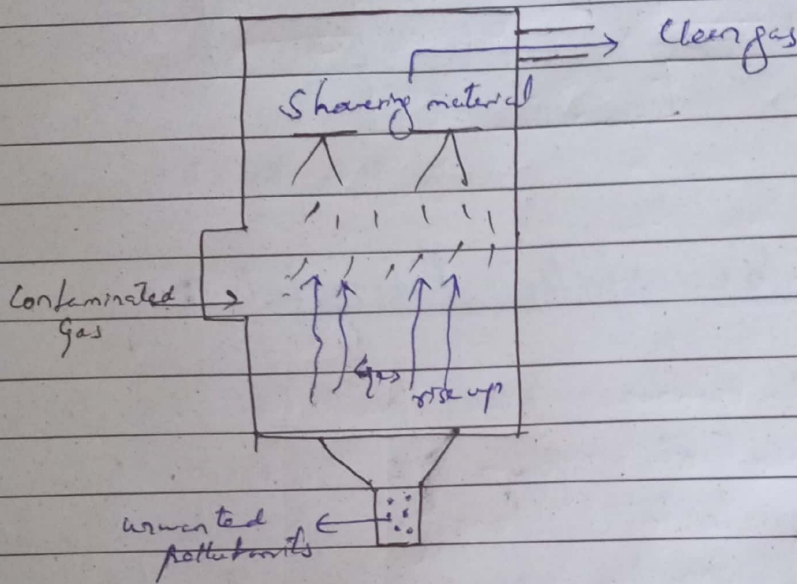 Clean gas
Showering material
Contaminated
Gas
Gas rise up
unwanted
pollutants